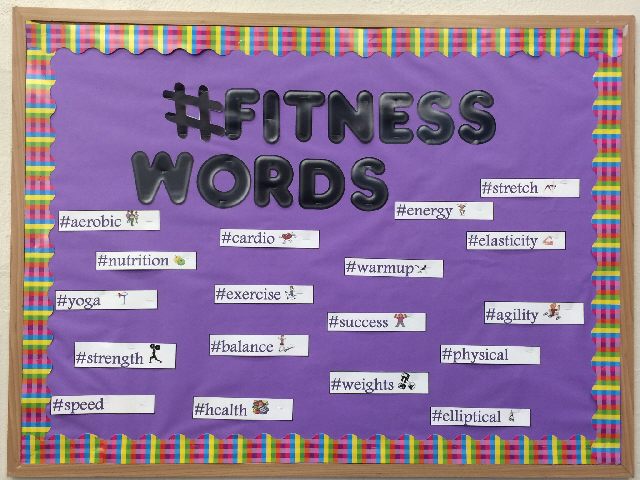 #FITNESS
WORDS
#stretch
#energy
#aerobic
#cardio
#elasticity
#nutrition
#warmup
#yoga
#exercise
#agility
#success
#strength
#balance
#physical
#weights
#speed
#health
#elliptical